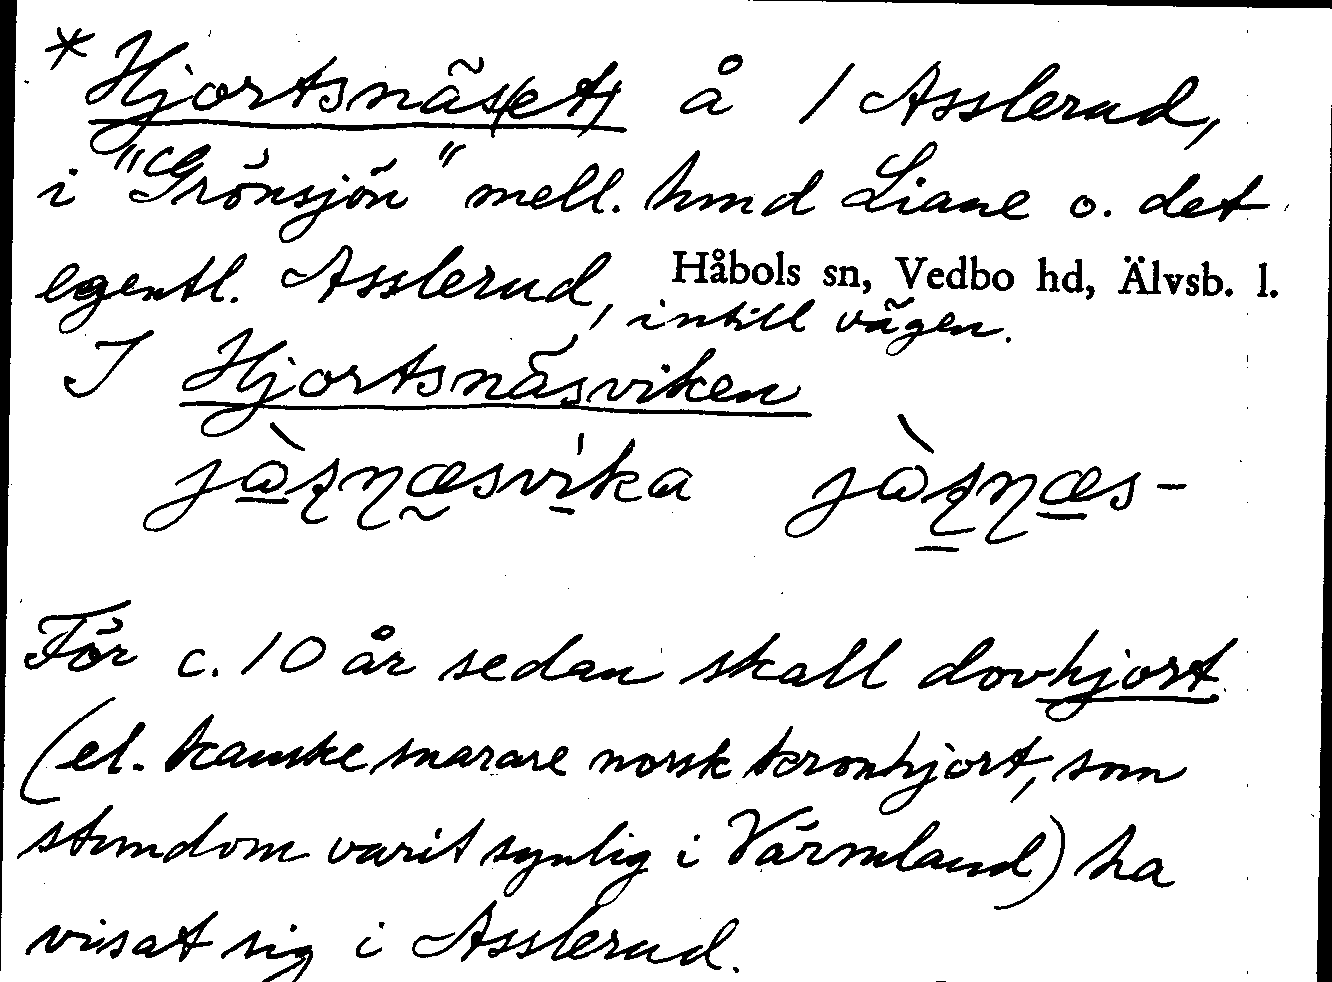 * Hjortsnäs(et) å 1 Asslerud,
i "Grönsjön" mell. hmd Liane o. det
egentl. Asslerud, Håbols sn, Vedbo hd, Älvsb. l.
intill vägen.
I Hjortsnäsviken
För c. 10 år sedan skall dovhjort
(el. kanske snarare norsk kronhjort, som
stundom varit synlig i Värmland) ha
visat sig i Asslerud.